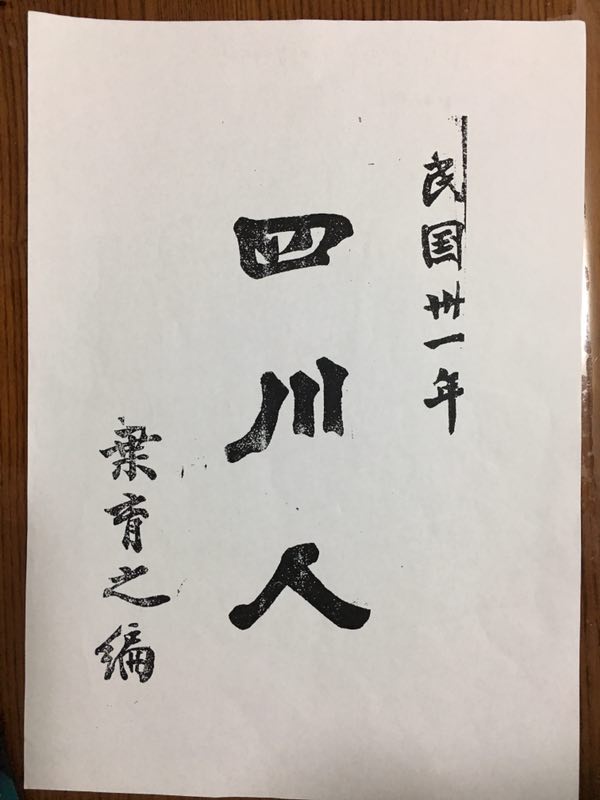 民国卅一年
四川人
葉育之编